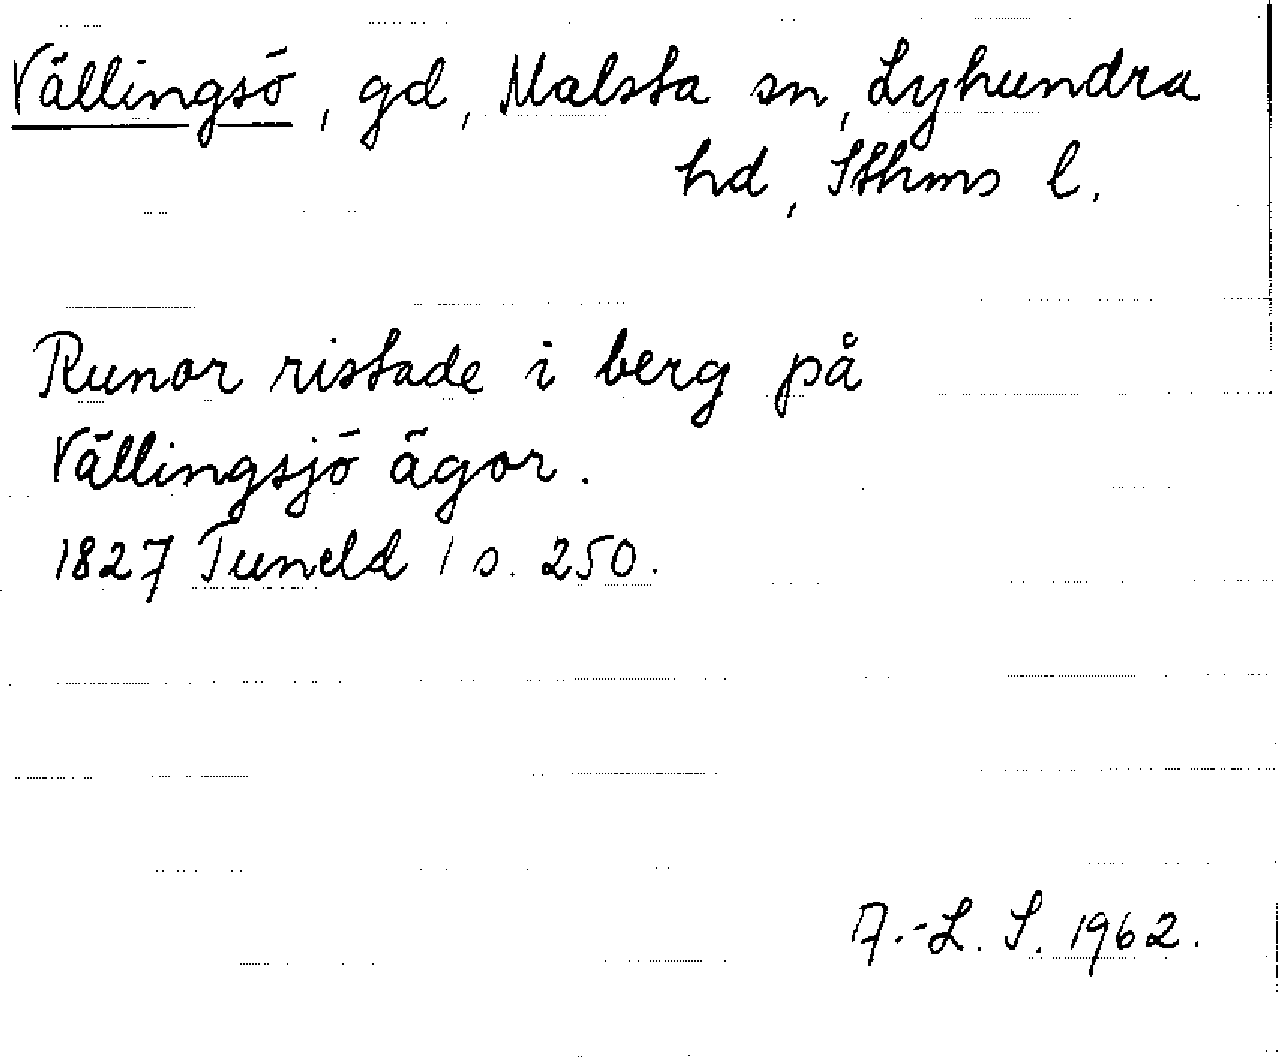 Vällingsö, gd, Malsta sn, Lyhundra
hd, Sthms l.
Runor ristade i berg på
Vällingsjö ägor.
1827 Tuneld 1 s. 250.
A.-L. S. 1962.